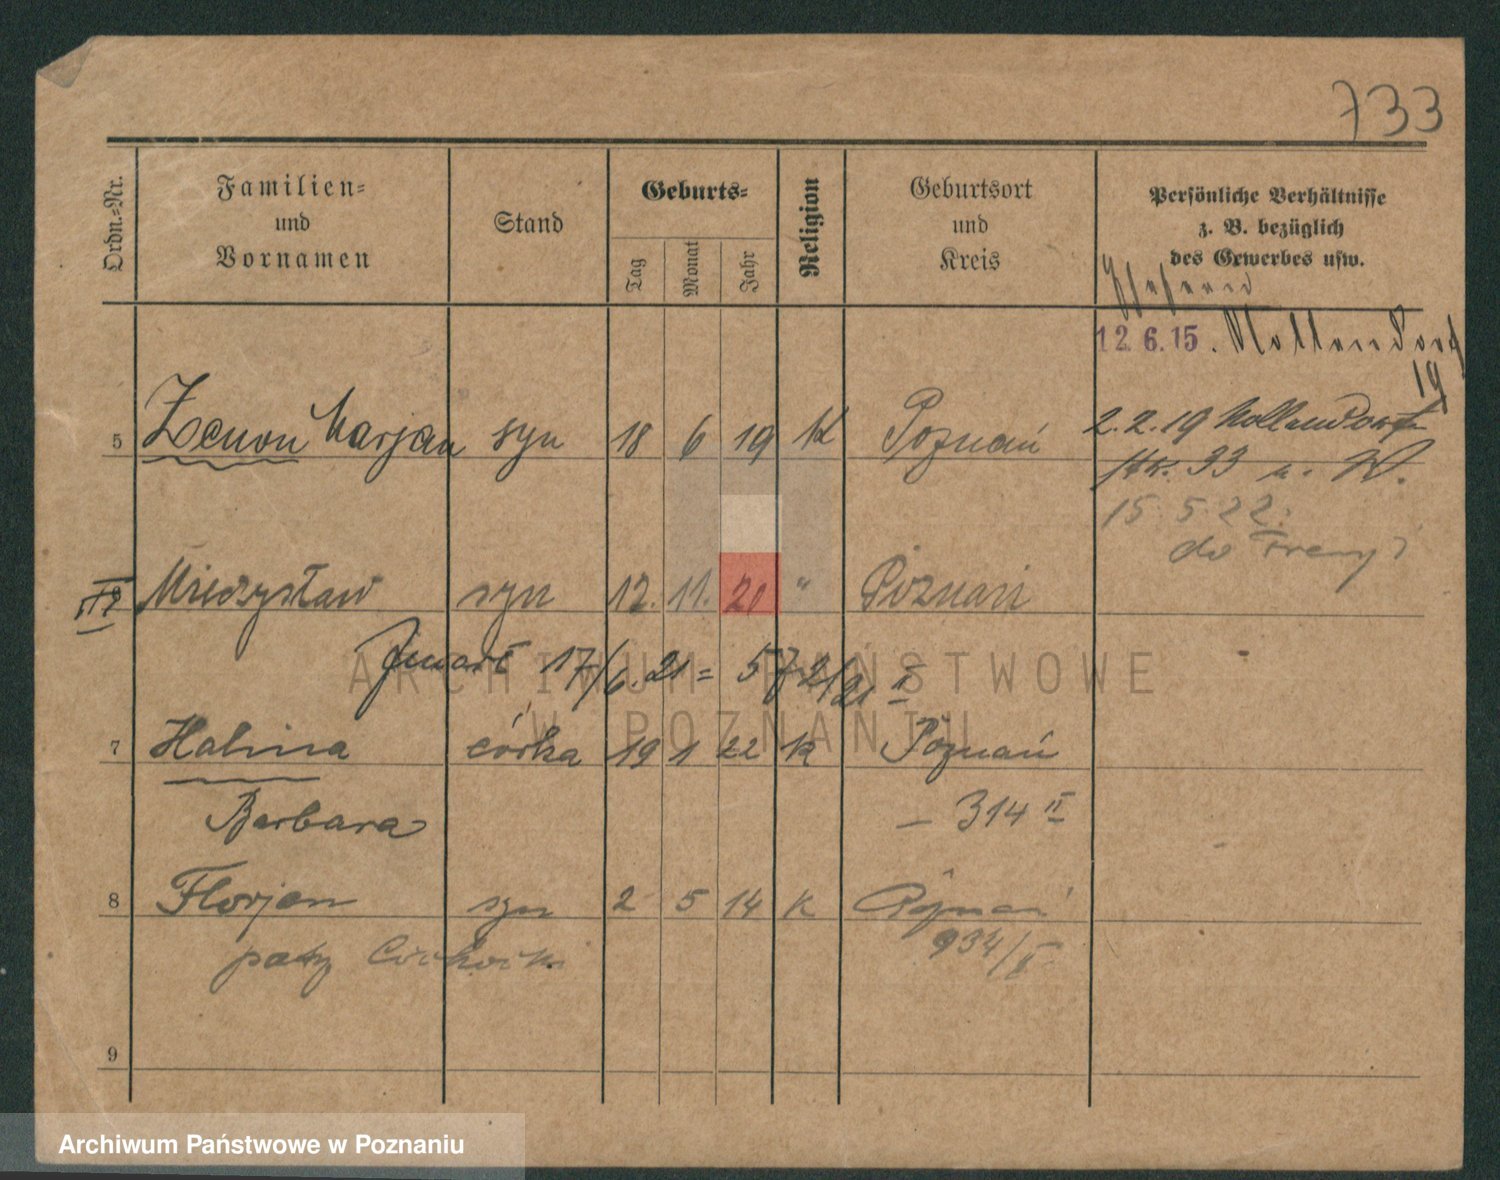 733
Ordn.-Nr.
Familien-
und
Vornamen
Stand
Geburts-
Tag
Monat
Jahr
Religion
Geburtsort
und
Kreis
Persönliche Verhältnisse
z. B. bezüglich
des Gewerbes usw.
12.6.15. Nollendorf
19
5 Zenon Marjan syn 18 6 19 K Poznań 2.2.19 Nollendorf
Str. 33 W.
15 5 22.
do
Mieczysław syn 12. 11. 20 " Poznań
Zmarł 17/6.21 = 572/21 II
7 Halina córka 19 1 22 K Poznań
Barbara — 314 II
8 Florjan syn 2 5 14 K Poznań
patrz 934/II
9
ARCHIWUM PAŃSTWOWE
W POZNANIU
Archiwum Państwowe w Poznaniu